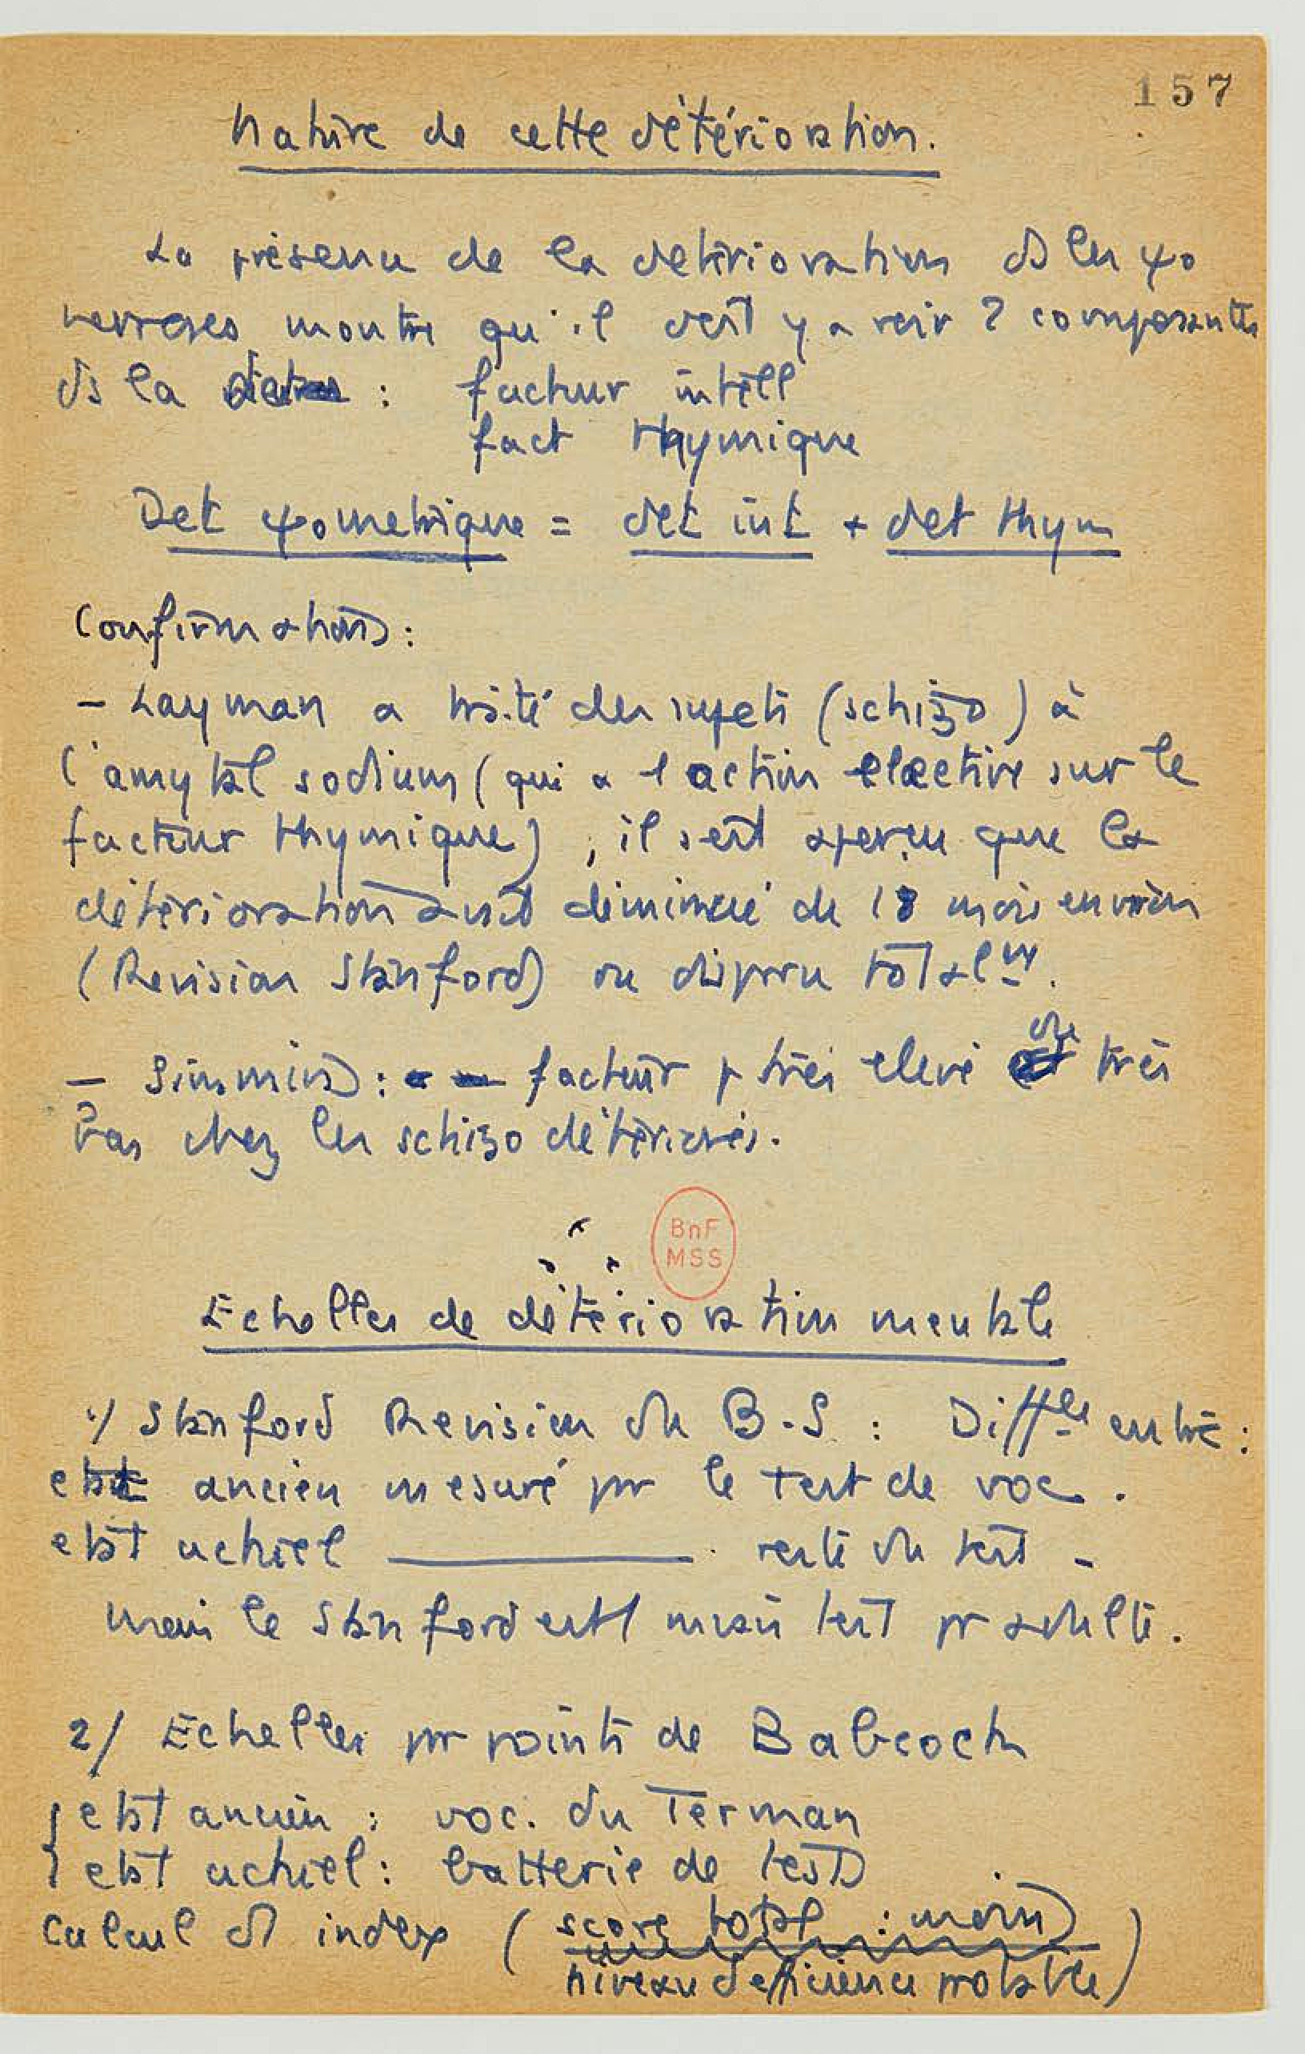 157
Nature de cette détérioration.
La présence de la deterioration ds les ψo
nevroses montre qu'il doit y avoir 2 composantes
ds la deter : facteur intell
fact thymique
Det ψometrique = det int + det thym
Confirmations :
- Layman a traité des sujets (schizo) à
l'amytal sodium (qui a 1 action elective sur le
facteur thymique) ; il s'est aperçu que la
détérioration avait diminué de 18 mois environ
(Revision Stanford) ou disparu totalmt.
- Simmins : facteur p très elevé chez très
bas chez les schizo détériorés.
BnF
MSS
Echelles de détérioration mentale
1/ Stanford Revision du B-S : Diffces entre :
etat ancien mesuré pr le test de voc.
etat actuel ——— reste du test -
mais le Stanford est 1 mauv test pr adulte.
2/ Echelles pr points de Babcock
etat ancien : voc. du Terman
etat actuel : batterie de tests
Calcul d'1 index ( score total : moins
niveau d'efficience probable )